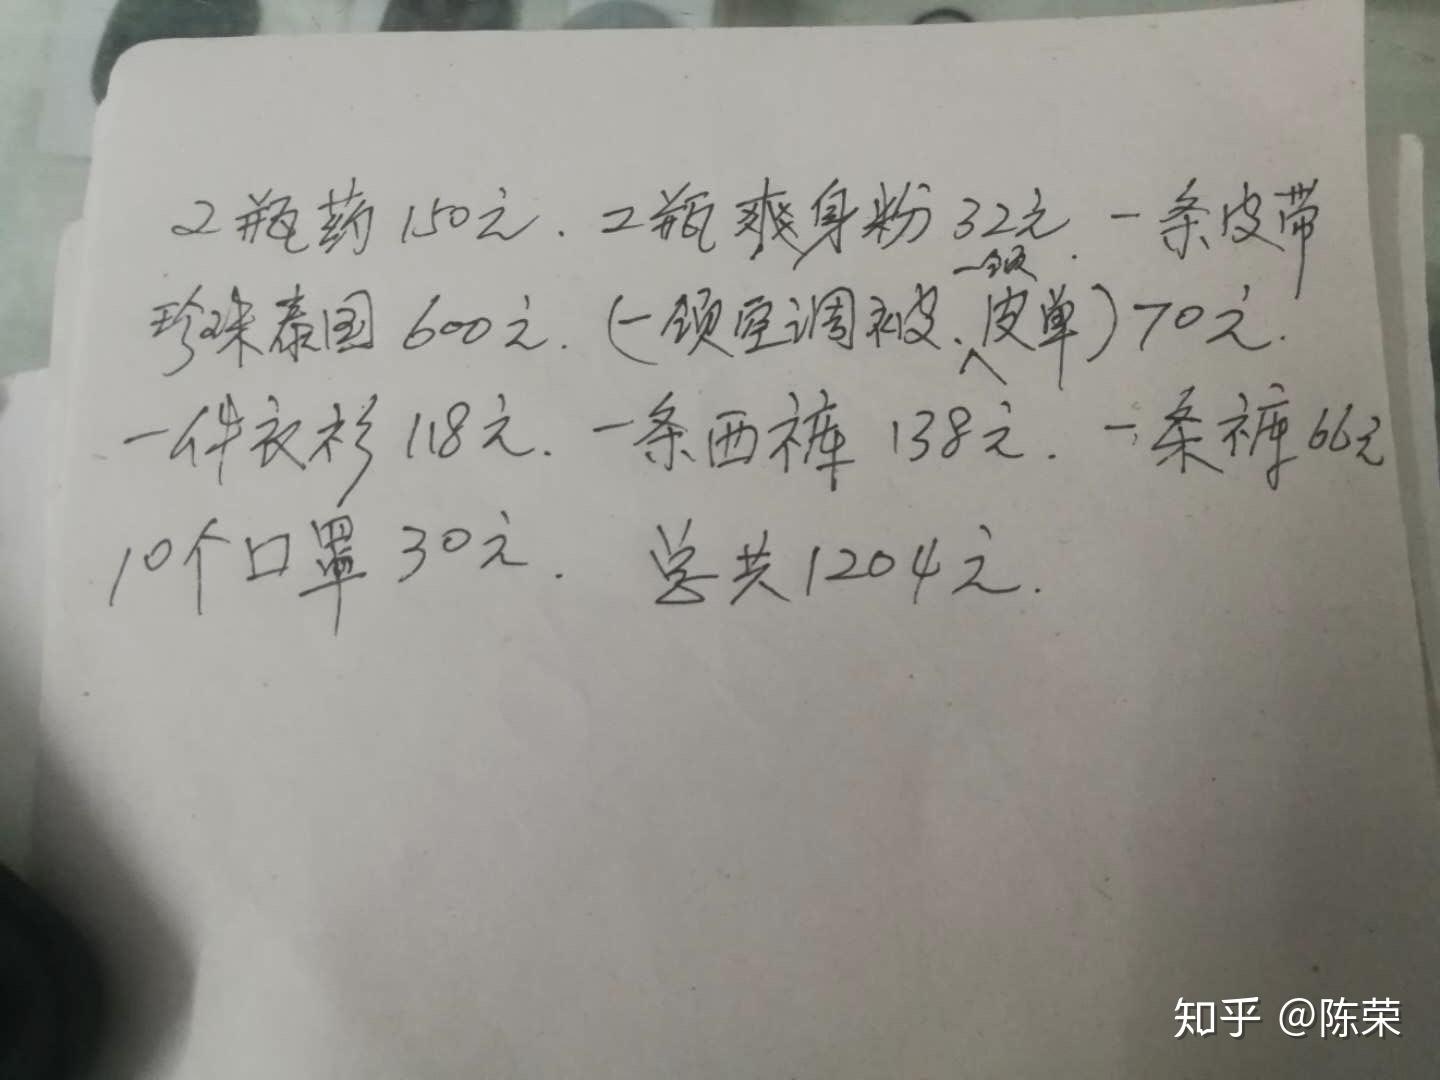 2瓶药150元.2瓶爽身粉32元.一条皮带
珍珠泰国600元.(一领空调被、一领皮单)70元.
一件衣衫118元.一条西裤138元.一条裤66元
10个口罩30元.总共1204元.
知乎 @陈荣